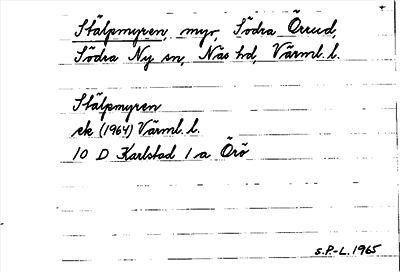 Stälpmyren, myr, Södra Örrud,
Södra Ny sn, Näs hd, Värml. l.
Stälpmyren
ek (1964) Värml. l.
10 D Karlstad 1 a Örö
S.P-L. 1965